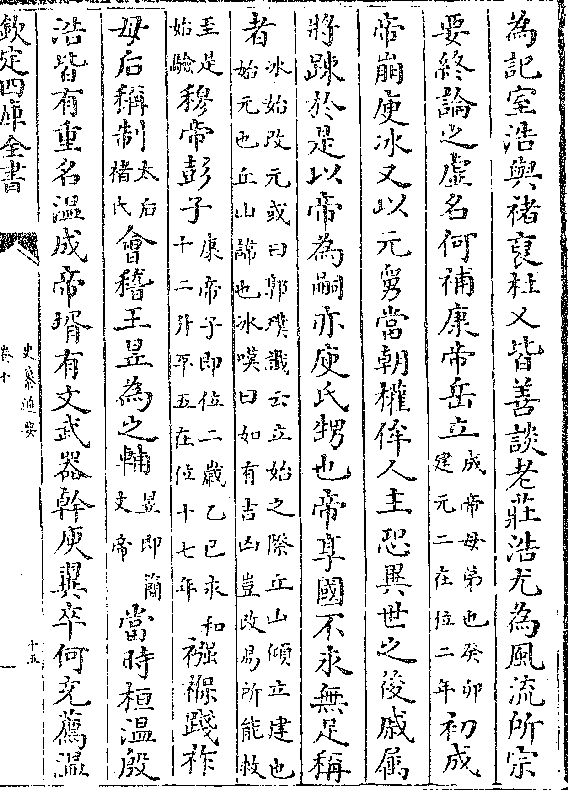 為記室浩與禇裒杜乂皆善談老莊浩尤為風流所宗
要終論之虛名何補康帝岳立成帝母弟也癸卯建元二在位二年初成
帝崩庾冰又以元舅當朝權侔人主恐異世之後戚屬
將踈於是以帝為嗣亦庾氏甥也帝享國不永無足稱
者冰始改元或曰郭璞讖云立始之際丘山傾立建也始元也丘山諱也冰嘆曰如有吉凶豈改易所能救
至是始驗穆帝彭子康帝子即位二歳乙巳永和十二升平五在位十七年襁褓踐祚
母后稱制太后禇氏會稽王昱為之輔昱即簡文帝當時桓温殷
浩皆有重名温成帝壻有文武器幹庾翼卒何充薦温
欽定四庫全書
史纂通要
卷十
十五